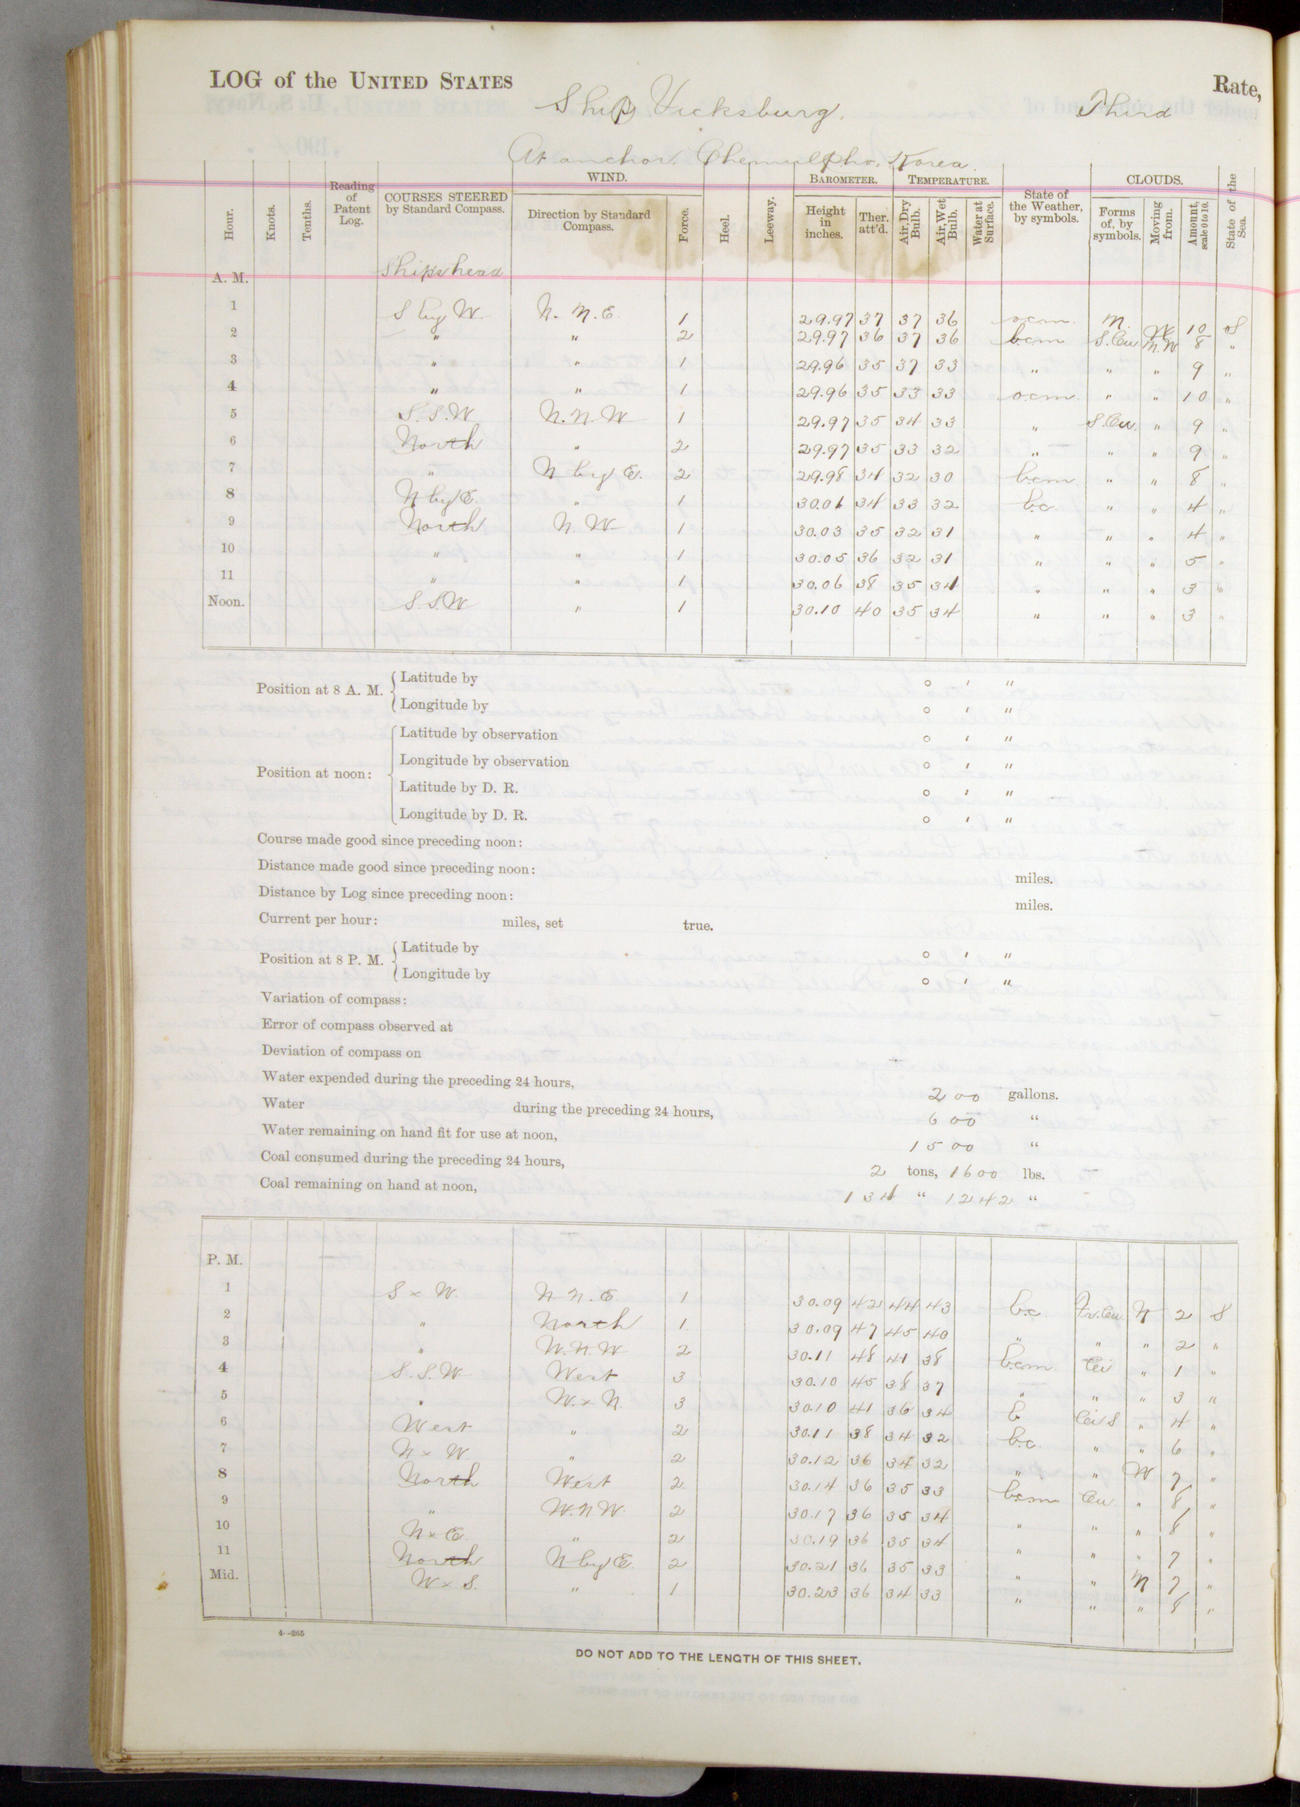 LOG of the UNITED STATES Ship Vicksburg, Rate, Third
At anchor, Chemulpho, Korea.
Hour. Knots. Tenths. Reading of Patent Log. COURSES STEERED by Standard Compass. WIND. Direction by Standard Compass. Force. Heel. Leeway. BAROMETER. Height in inches. Ther. att'd. TEMPERATURE. Air, Dry Bulb. Air, Wet Bulb. Water at Surface. State of the Weather, by symbols. CLOUDS. Forms of, by symbols. Moving from. Amount, scale 0 to 10. State of the Sea.
A. M. Ships head
1 S by W. N. N. E. 1 29.97 37 37 36 o.c.m. N. 10 S
2 " " 2 29.97 36 37 36 bcm S.Cu N.W 8 "
3 " " 1 29.96 35 37 33 " " " 9 "
4 " " 1 29.96 35 33 33 o.c.m. " " 10 "
5 S.S.W N.N.W 1 29.97 35 34 33 " S.Cu. " 9 "
6 North " 2 29.97 35 33 32 " " " 9 "
7 " N by E. 2 29.98 34 32 30 bcm " " 8 "
8 N by E. " 1 30.01 34 33 32 b.c. " " 4 "
9 North N. W 1 30.03 35 32 31 " " " 4 "
10 " " 1 30.05 36 32 31 " " " 5 "
11 " " 1 30.06 38 35 34 " " " 3 "
Noon. S.S.W " 1 30.10 40 35 34 " " " 3 "
Position at 8 A. M. Latitude by ° ' "
Longitude by ° ' "
Position at noon: Latitude by observation ° ' "
Longitude by observation ° ' "
Latitude by D. R. ° ' "
Longitude by D. R. ° ' "
Course made good since preceding noon:
Distance made good since preceding noon: miles.
Distance by Log since preceding noon: miles.
Current per hour: miles, set true.
Position at 8 P. M. Latitude by ° ' "
Longitude by ° ' "
Variation of compass:
Error of compass observed at
Deviation of compass on
Water expended during the preceding 24 hours, 200 gallons.
Water during the preceding 24 hours, 600 "
Water remaining on hand fit for use at noon, 1500 "
Coal consumed during the preceding 24 hours, 2 tons, 1600 lbs.
Coal remaining on hand at noon, 134 " 1242 "
P. M.
1 S x W. N. N. E. 1 30.09 42 44 43 b.c. Fr.Cu. N 2 S
2 " North 1 30.09 47 45 40 " " " 2 "
3 " W.N.W 2 30.11 48 41 38 bcm Cu " 1 "
4 S.S.W West 3 30.10 45 38 37 " " " 3 "
5 " W. x N. 3 30.10 41 36 34 b Ci S " 4 "
6 West " 2 30.11 38 34 32 b.c. " " 6 "
7 N x W " 2 30.12 36 34 32 " " W 7 "
8 North West 2 30.14 36 35 33 bcm Cu. " 8 "
9 " W.N.W. 2 30.17 36 35 34 " " " 8 "
10 N x E. " 2 30.19 36 35 34 " " " 7 "
11 North N by E. 2 30.21 36 35 33 " " N 7 "
Mid. W x S. " 1 30.23 36 34 33 " " " 8 "
4--265
DO NOT ADD TO THE LENGTH OF THIS SHEET.